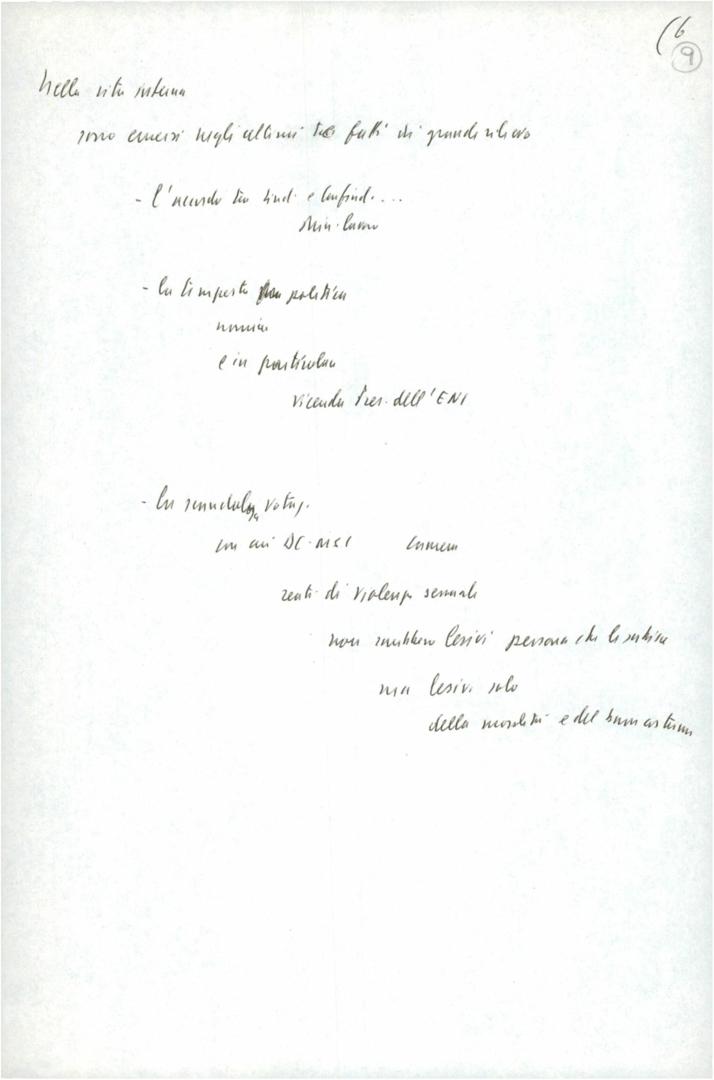 (6
9
Nella vita interna
sono emersi negli ultimi tre fatti di grande rilievo
- l'accordo tra sind. e Confind. ...
Min. Lavoro
- la tempesta politica
nomine
e in particolare
vicenda Pres. dell'ENI
- la scandalosa votaz.
con cui DC-MSI Camera
reati di violenza sessuale
non sarebbero lesivi persona che la subisce
ma lesivi solo
della moralità e del buon costume